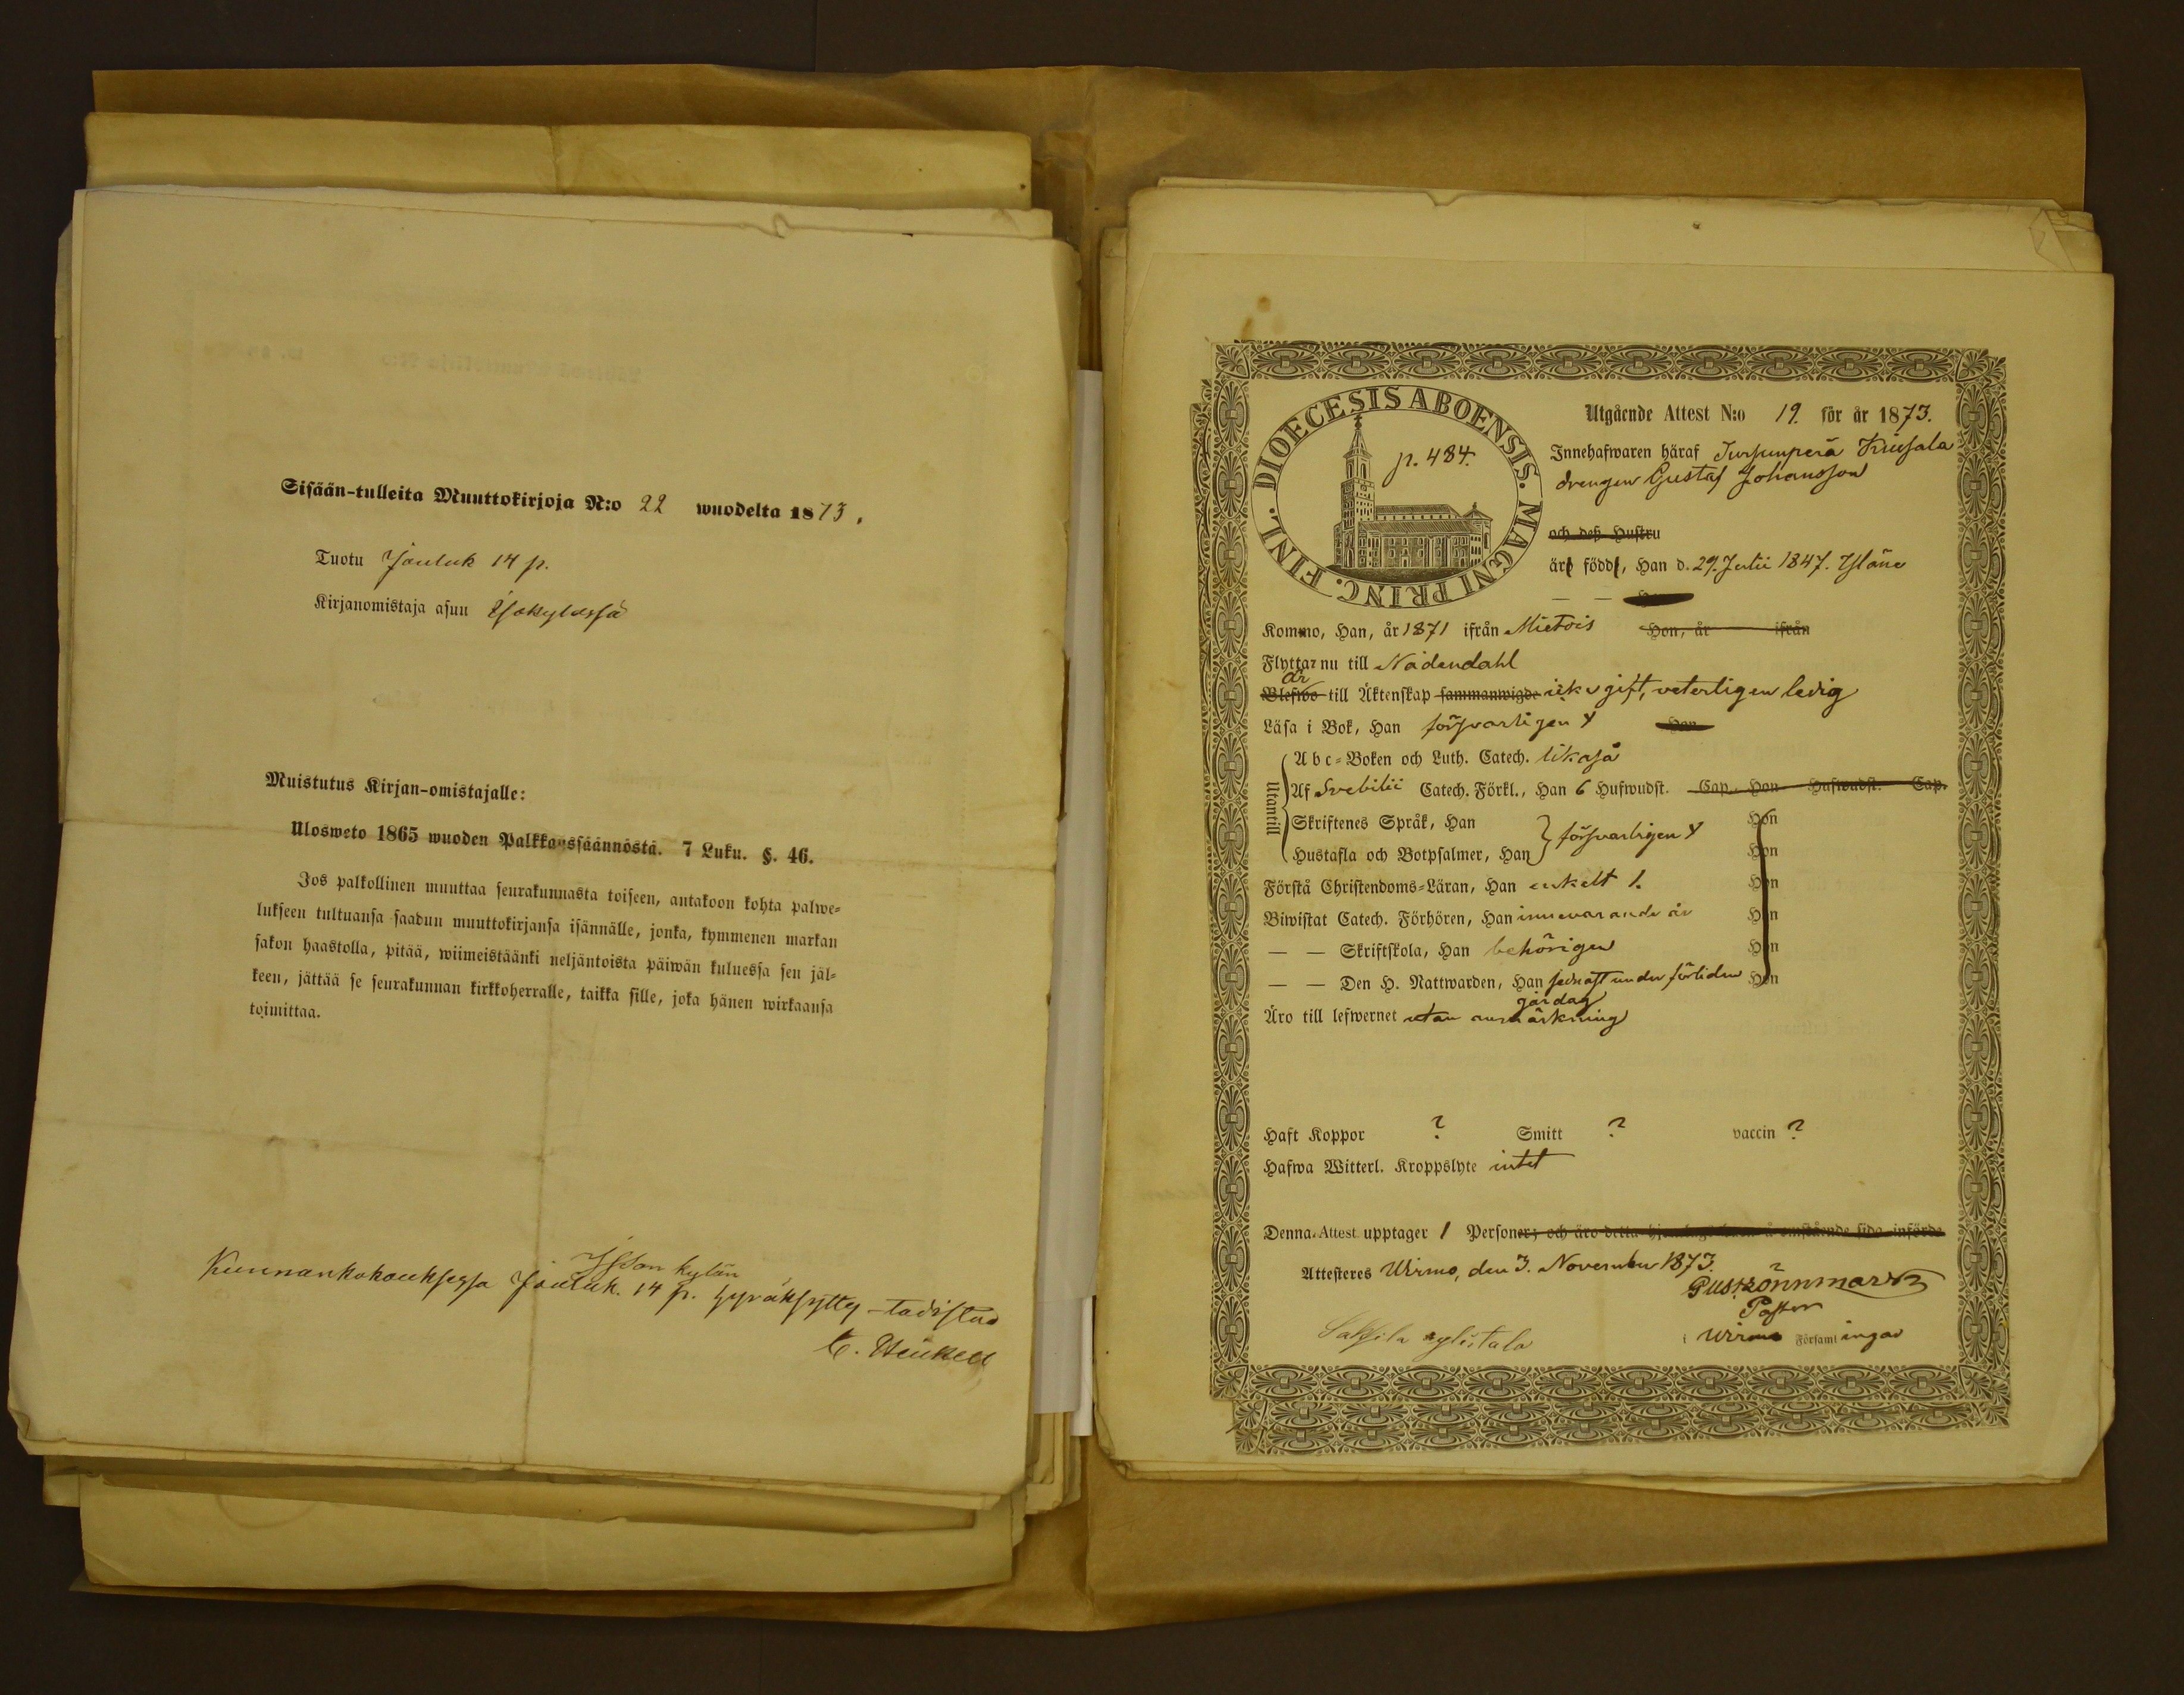 Sisään-tulleita Muuttokirjoja N:o 22 wuodelta 1873.
Tuotu Jouluk 14 p.
Kirjanomistaja asuu Isokylässä
Muistutus Kirjan-omistajalle:
Ulosweto 1865 wuoden Palkkaussäännöstä. 7 Luku. §. 46.
Jos palkollinen muuttaa seurakunnasta toiseen, antakoon kohta palwe=
lukseen tultuansa saadun muuttokirjansa isännälle, jonka, kymmenen markan
sakon haastolla, pitää, wiimeistäänki neljäntoista päiwän kuluessa sen jäl=
keen, jättää se seurakunnan kirkkoherralle, taikka sille, joka hänen wirkaansa
toimittaa.
kylän
Kunnankokouksessa Jouluk. 14 p. hyväksytty - todistaa
DIOECESIS ABOENSIS. MAGNI PRINC. FINL.
p. 484.
Utgående Attest N:o 19. för år 1873.
Innehafwaren häraf
drengen Gustaf Johansson
och deß Hustru
äro födde, Han d. 29. Julii 1847. Yläne
Kommo, Han, år 1871 ifrån Mietois Hon, år ifrån
Flyttar nu till Nådendahl
är
Blefwo till Äktenskap sammanwigde icke gift, veterligen ledig
Läsa i Bok, Han försvarligen Y Hon
Utantill
Abc=Boken och Luth. Catech. likaså
Af Svebilii Catech. Förkl., Han 6 Hufwudst. Cap. Hon Hufwudst. Cap.
Skriftenes Språk, Han Hon
försvarligen Y
Hustafla och Botpsalmer, Han Hon
Förstå Christendoms=Läran, Han enkelt 1. Hon
Biwistat Catech. Förhören, Han innevarande år Hon
— — Skriftskola, Han behörigen Hon
— — Den H. Nattwarden, Han under förliden Hon
Äro till lefwernet utan anmärkning
Haft Koppor ? Smitt ? vaccin ?
Hafwa Witterl. Kroppslyte intet
Denna Attest upptager 1 Personer; och äro detta å omstående sida införde
Attesteres Wirmo, den 3. November 1873.
Pastor
i Wirmo Församlingar